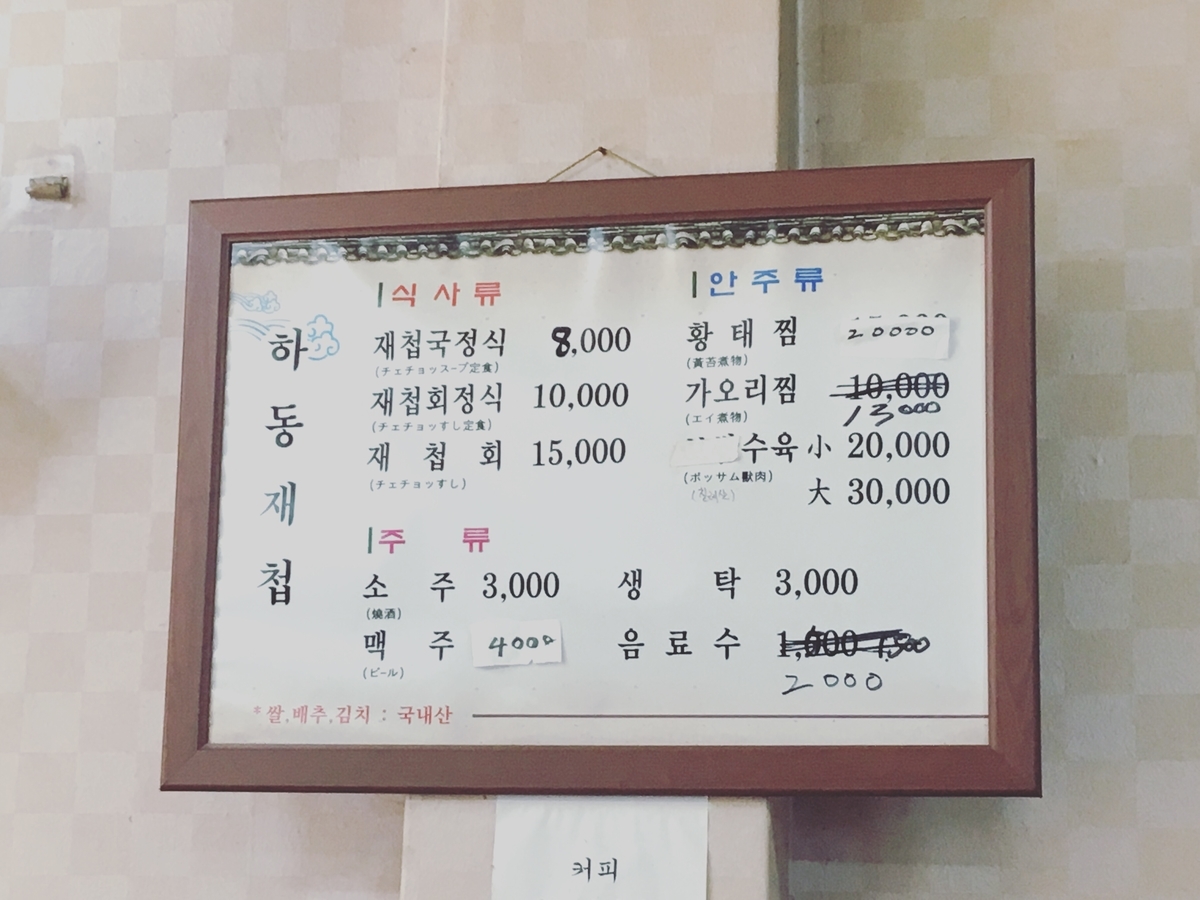 하동재첩
식사류
재첩국정식 8,000
(チェチョッスープ定食)
재첩회정식 10,000
(チェチョッすし定食)
재첩회 15,000
(チェチョッすし)
안주류
황태찜 20000
(黃苔煮物)
가오리찜 10,000
13000
(エイ煮物)
수육 小 20,000
(ボッサム獸肉)
大 30,000
주류
소주 3,000 생탁 3,000
(燒酒)
맥주 4000 음료수 1,000 1,500
(ビール)
2000
*쌀,배추,김치 : 국내산
커피